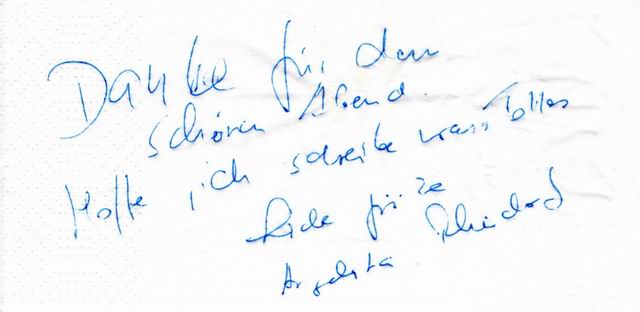 Danke für den
schönen Abend.
Hoffe ich schreibe was Tolles
Liebe Grüße